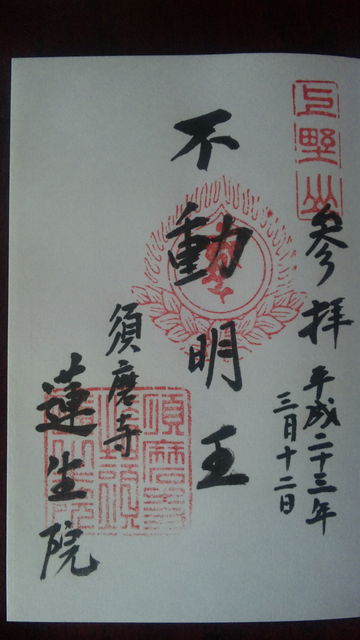 上野山
参拝
平成二十三年
三月十二日
不動明王
須磨寺
蓮生院